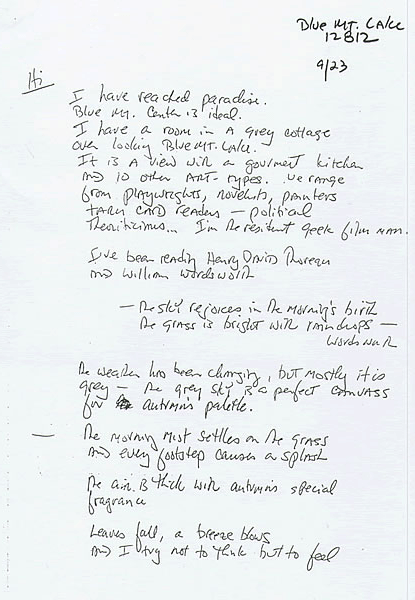 Blue Mt. Lake
12812
9/23
Hi
I have reached paradise.
Blue Mt. Center is ideal.
I have a room in a grey cottage
over looking Blue Mt. Lake.
It is a view with a gourment kitchen
and 10 other art-types. We range
from playwrights, novelists, painters
tarot card readers — political
theoriticians... I'm the resident geek film man.
I've been reading Henry David Thoreau
and William Wordsworth
— The sky rejoices in the morning's birth
The grass is bright with rain drops —
Wordsworth
The weather has been changing, but mostly it is
grey — the grey sky is a perfect canvass
for autumn's palette.
— The morning mist settles on the grass
and every footstep causes a splash
The air is thick with autumn's special
fragrance
Leaves fall, a breeze blows
and I try not to think but to feel